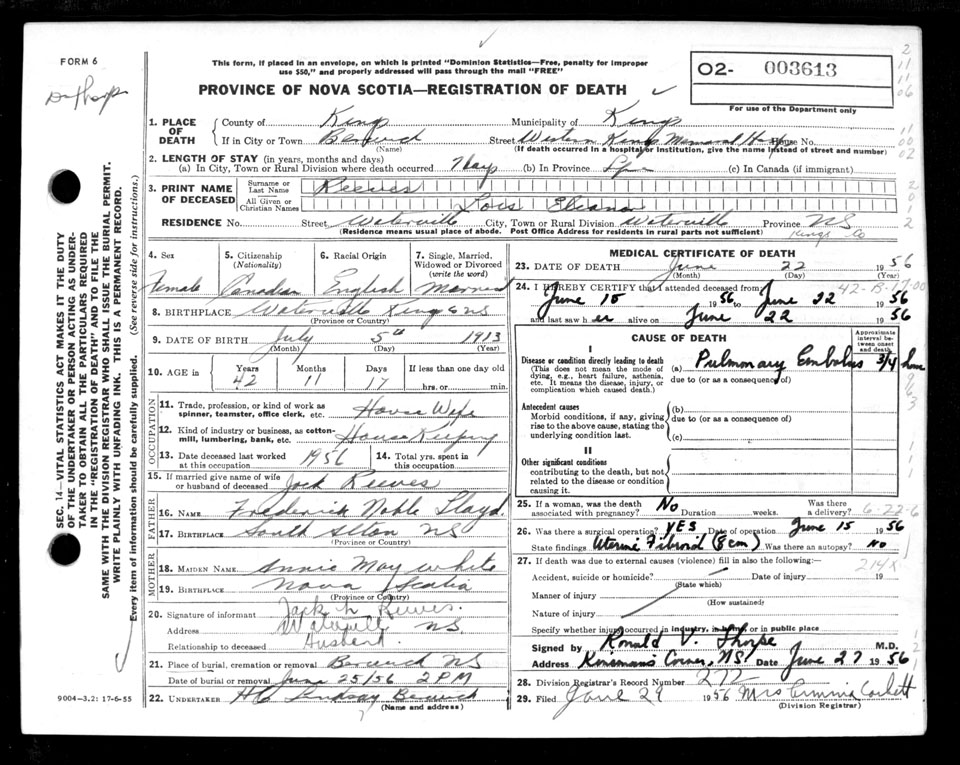 FORM 6
Dr Thorpe
This form, if placed in an envelope, on which is printed "Dominion Statistics—Free, penalty for improper
use $50," and properly addressed will pass through the mail "FREE"
02- 003613
For use of the Department only
PROVINCE OF NOVA SCOTIA—REGISTRATION OF DEATH
SEC. 14—VITAL STATISTICS ACT MAKES IT THE DUTY
OF THE UNDERTAKER OR PERSON ACTING AS UNDER-
TAKER TO OBTAIN ALL THE PARTICULARS REQUIRED
IN THE "REGISTRATION OF DEATH" AND TO FILE THE
SAME WITH THE DIVISION REGISTRAR WHO SHALL ISSUE THE BURIAL PERMIT.
WRITE PLAINLY WITH UNFADING INK. THIS IS A PERMANENT RECORD.
Every item of information should be carefully supplied. (See reverse side for instructions.)
1. PLACE OF DEATH
County of Kings Municipality of Kings
If in City or Town Berwick Street Western Kings Memorial Hosp House No.
(Name) (If death occurred in a hospital or institution, give the name instead of street and number)
2. LENGTH OF STAY (in years, months and days)
(a) In City, Town or Rural Division where death occurred 7 days (b) In Province (c) In Canada (if immigrant)
3. PRINT NAME OF DECEASED
Surname or Last Name Reeves
All Given or Christian Names Lois Eleanor
RESIDENCE No. Street Waterville City, Town or Rural Division Waterville Province NS
(Residence means usual place of abode. Post Office Address for residents in rural parts not sufficient) Kings Co
4. Sex 5. Citizenship (Nationality) 6. Racial Origin 7. Single, Married, Widowed or Divorced (write the word)
Female Canadian English Married
8. BIRTHPLACE Waterville Kings NS
(Province or Country)
9. DATE OF BIRTH July 5th 1913
(Month) (Day) (Year)
10. AGE in Years Months Days If less than one day old
42 11 17 hrs. or min.
OCCUPATION
11. Trade, profession, or kind of work as spinner, teamster, office clerk, etc. House Wife
12. Kind of industry or business, as cotton-mill, lumbering, bank, etc. House Keeping
13. Date deceased last worked at this occupation 1956 14. Total yrs. spent in this occupation
15. If married give name of wife or husband of deceased Jack Reeves
FATHER
16. NAME Frederick Noble Lloyd
17. BIRTHPLACE South Alton NS
(Province or Country)
MOTHER
18. MAIDEN NAME Annie May White
19. BIRTHPLACE Nova Scotia
(Province or Country)
20. Signature of informant Jack L Reeves.
Address Waterville NS
Relationship to deceased Husband.
21. Place of burial, cremation or removal Berwick NS
Date of burial or removal June 25/56 2 PM
22. UNDERTAKER HC Lindsay Berwick
(Name and address)
9004—3.2: 17-6-55
MEDICAL CERTIFICATE OF DEATH
23. DATE OF DEATH June 22 1956
(Month) (Day) (Year)
24. I HEREBY CERTIFY that I attended deceased from 42-B-17-00
June 15 1956 to June 22 1956
and last saw her alive on June 22 1956
CAUSE OF DEATH
Approximate interval between onset and death
I
Disease or condition directly leading to death
(This does not mean the mode of dying, e.g., heart failure, asthenia, etc. It means the disease, injury, or complication which caused death.)
(a) Pulmonary Embolus 3/4 hour
due to (or as a consequence of)
Antecedent causes
Morbid conditions, if any, giving rise to the above cause, stating the underlying condition last.
(b)
due to (or as a consequence of)
(c)
II
Other significant conditions
contributing to the death, but not related to the disease or condition causing it.
25. If a woman, was the death associated with pregnancy? No Duration weeks. Was there a delivery? 6-22-6
26. Was there a surgical operation? YES Date of operation June 15 1956
State findings Uterine Fibroid (8cm) Was there an autopsy? No
27. If death was due to external causes (violence) fill in also the following:
214X
Accident, suicide or homicide? Date of injury 19
(State which)
Manner of injury
(How sustained)
Nature of injury
Specify whether injury occurred in industry, in home, or in public place
Signed by Ronald V. Thorpe M.D.
Address Kinsmans Corner, NS. Date June 27 1956
28. Division Registrar's Record Number 272
29. Filed June 29 1956 Mrs Erminia Corbett
(Division Registrar)